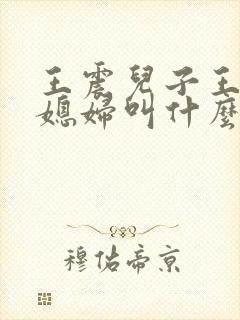 王震兒子王
媳婦叫什麼
穆佑帝京